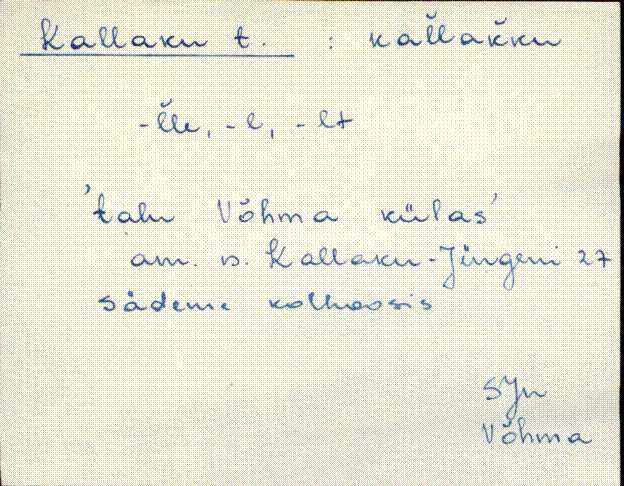 Kallaku t. : kal̆lak̆ku
-l̆le, -l, -lt
'talu Võhma külas'
am. n. Kallaku-Jüngeni 27
sädeme kolhoosis
SJn
Võhma